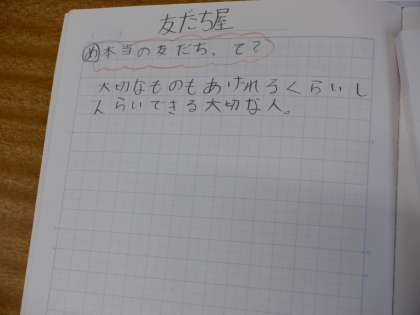 友だち屋
め本当の友だち、て?
大切なものもあけれろくらいし
んらいできる大切な人。